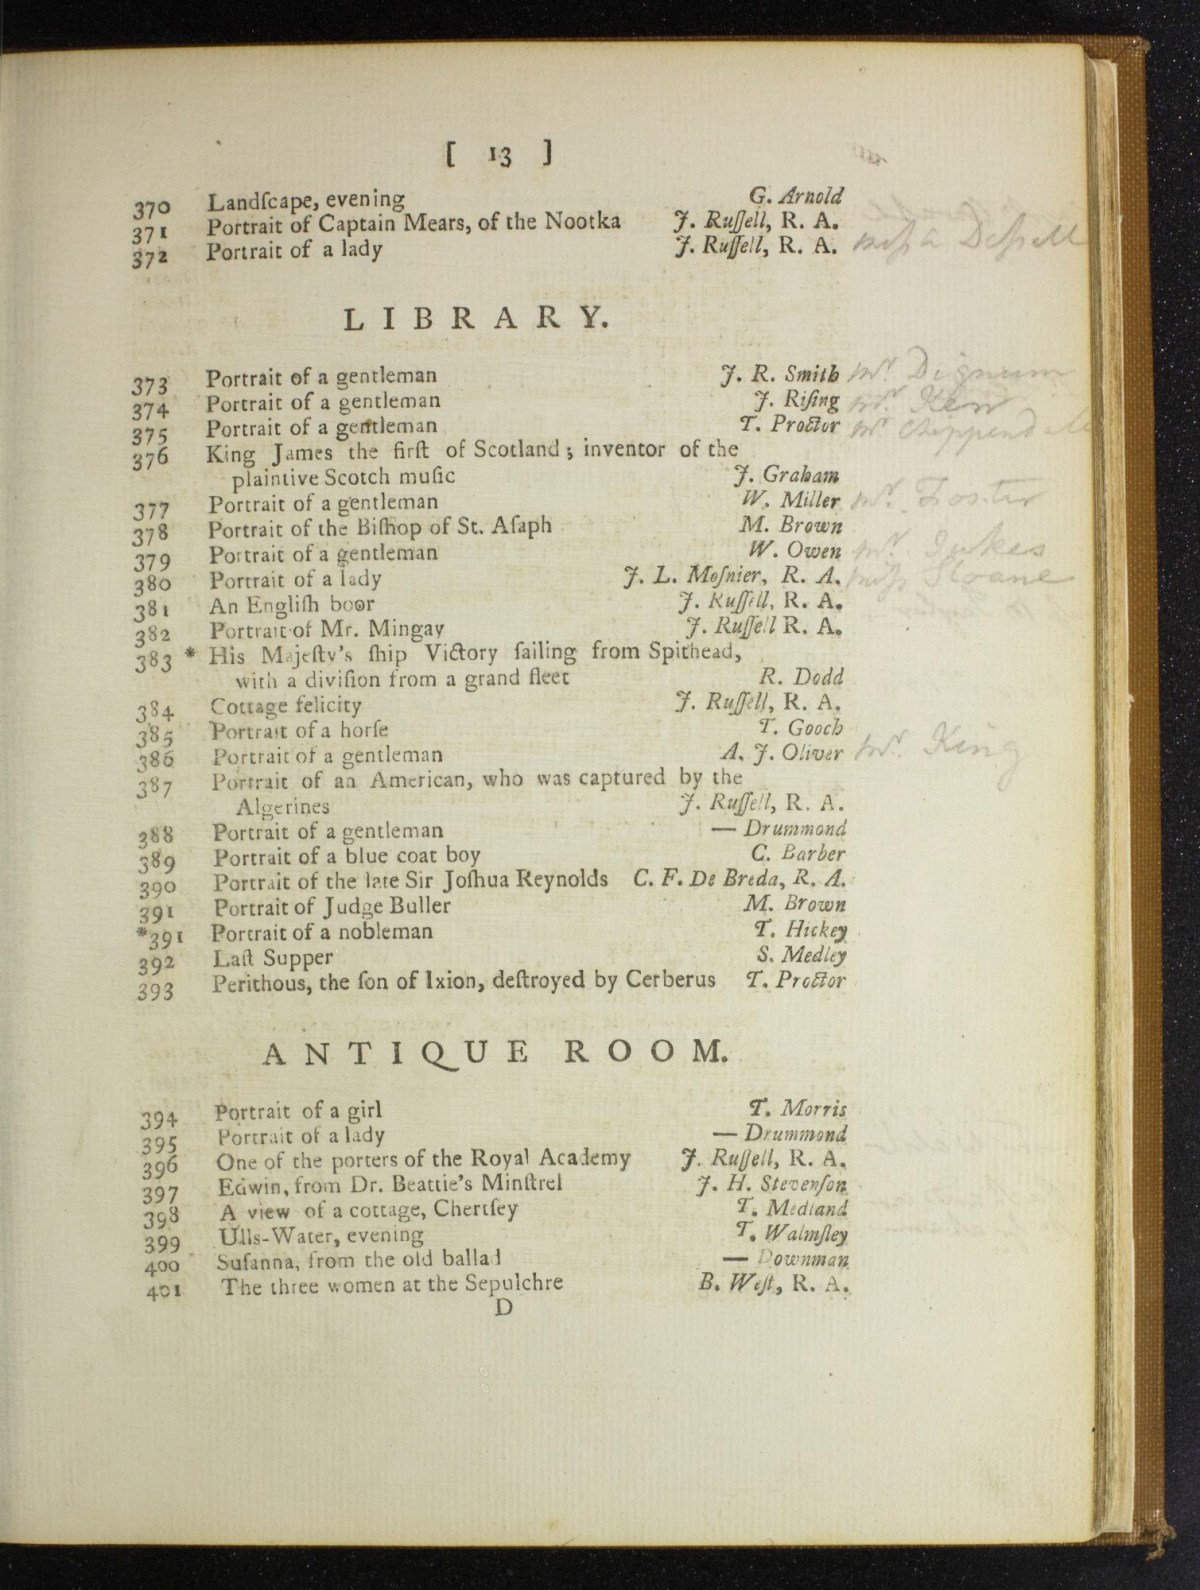 [ 13 ]
370 Landſcape, evening G. Arnold
371 Portrait of Captain Mears, of the Nootka J. Ruſſell, R. A.
372 Portrait of a lady J. Ruſſell, R. A.
LIBRARY.
373 Portrait of a gentleman J. R. Smith Mr. Dignum
374 Portrait of a gentleman J. Riſing Mr. Kew
375 Portrait of a gentleman T. Proctor Mr Chippendale
376 King James the firſt of Scotland; inventor of the
plaintive Scotch muſic J. Graham
377 Portrait of a gentleman W. Miller Mr. Foster
378 Portrait of the Biſhop of St. Aſaph M. Brown
379 Portrait of a gentleman W. Owen Mr. Jukes
380 Portrait of a lady J. L. Moſnier, R. A. Miſs Sloane
381 An Engliſh boor J. Ruſſell, R. A.
382 Portrait of Mr. Mingay J. Ruſſell R. A.
383 * His Majeſty's ſhip Victory ſailing from Spithead,
with a diviſion from a grand fleet R. Dodd
384 Cottage felicity J. Ruſſell, R. A.
385 Portrait of a horſe T. Gooch
386 Portrait of a gentleman A. J. Oliver Mr. King
387 Portrait of an American, who was captured by the
Algerines J. Ruſſell, R. A.
388 Portrait of a gentleman — Drummond
389 Portrait of a blue coat boy C. Barber
390 Portrait of the late Sir Joſhua Reynolds C. F. De Breda, R. A.
391 Portrait of Judge Buller M. Brown
*391 Portrait of a nobleman T. Hickey
392 Laſt Supper S. Medley
393 Perithous, the ſon of Ixion, deſtroyed by Cerberus T. Proctor
ANTIQUE ROOM.
394 Portrait of a girl T. Morris
395 Portrait of a lady — Drummond
396 One of the porters of the Royal Academy J. Ruſſell, R. A.
397 Edwin, from Dr. Beattie's Minſtrel J. H. Stevenſon
398 A view of a cottage, Chertſey T. Medland
399 Ulls-Water, evening T. Walmſley
400 Suſanna, from the old ballad — Downman
401 The three women at the Sepulchre B. Weſt, R. A.
D